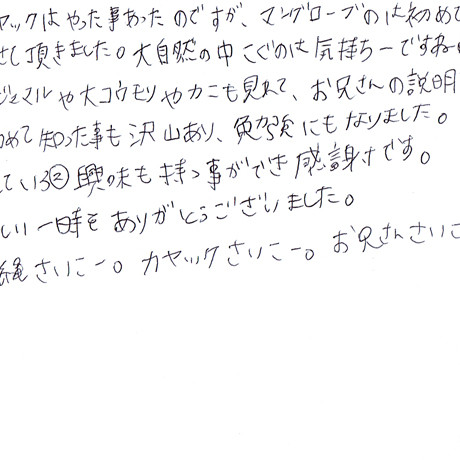 ヤックはやった事あったのですが、マングローブのは初めて
させて頂きました。大自然の中こぐのは気持ちーですねー
ジュマルや大コウモリやカニも見れて、お兄さんの説明
めて知った事も沢山あり、勉強にもなりました。
ていろ②興味も持つ事ができ感謝です。
しい一時をありがとうございました。
縄さいこー。カヤックさいこー。お兄さんさいこ